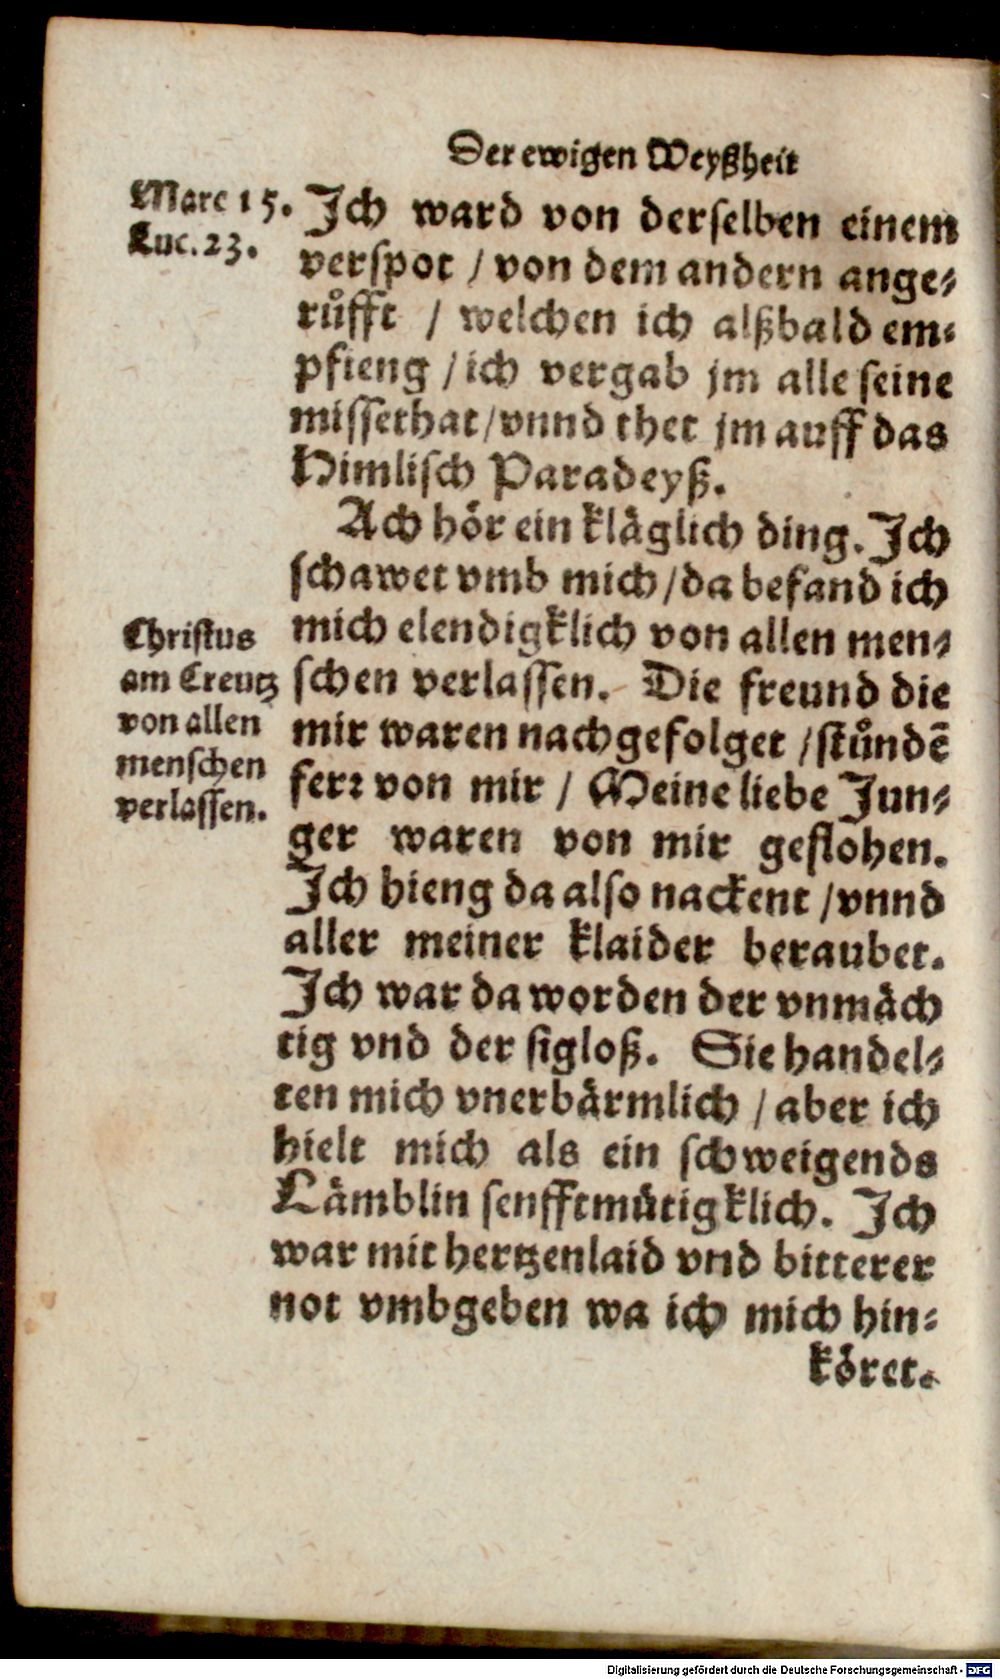 Der ewigen Weyßheit
Marc 15.
Luc. 23.
Ich ward von derselben einem
verspot / von dem andern ange⸗
růfft / welchen ich alßbald em⸗
pfieng / ich vergab jm alle seine
missethat / vnnd thet jm auff das
Himlisch Paradeyß.
Ach hör ein kläglich ding. Ich
schawet vmb mich / da befand ich
mich elendigklich von allen men⸗
schen verlassen. Die freund die
mir waren nachgefolget / stůndē
ferꝛ von mir / Meine liebe Jun⸗
ger waren von mir geflohen.
Ich hieng da also nackent / vnnd
aller meiner klaider beraubet.
Ich war da worden der vnmäch
tig vnd der sigloß. Sie handel⸗
ten mich vnerbärmlich / aber ich
hielt mich als ein schweigends
Lämblin senfftmütigklich. Ich
war mit hertzenlaid vnd bitterer
not vmbgeben wa ich mich hin⸗
köret.
Christus
am Creutz
von allen
menschen
verlassen.
Digitalisierung gefördert durch die Deutsche Forschungsgemeinschaft - DFG